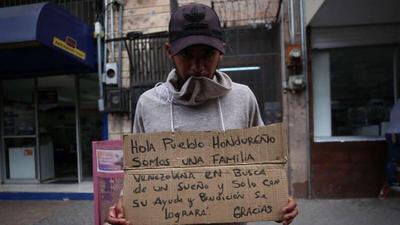 HOLA PUEBLO HONDUREÑO
SOMOS UNA FAMILIA
VENEZOLANA EN BUSCA
DE UN SUEÑO Y SOLO CON
SU AYUDA Y BENDICIÓN SE
LOGRARA. GRACIAS